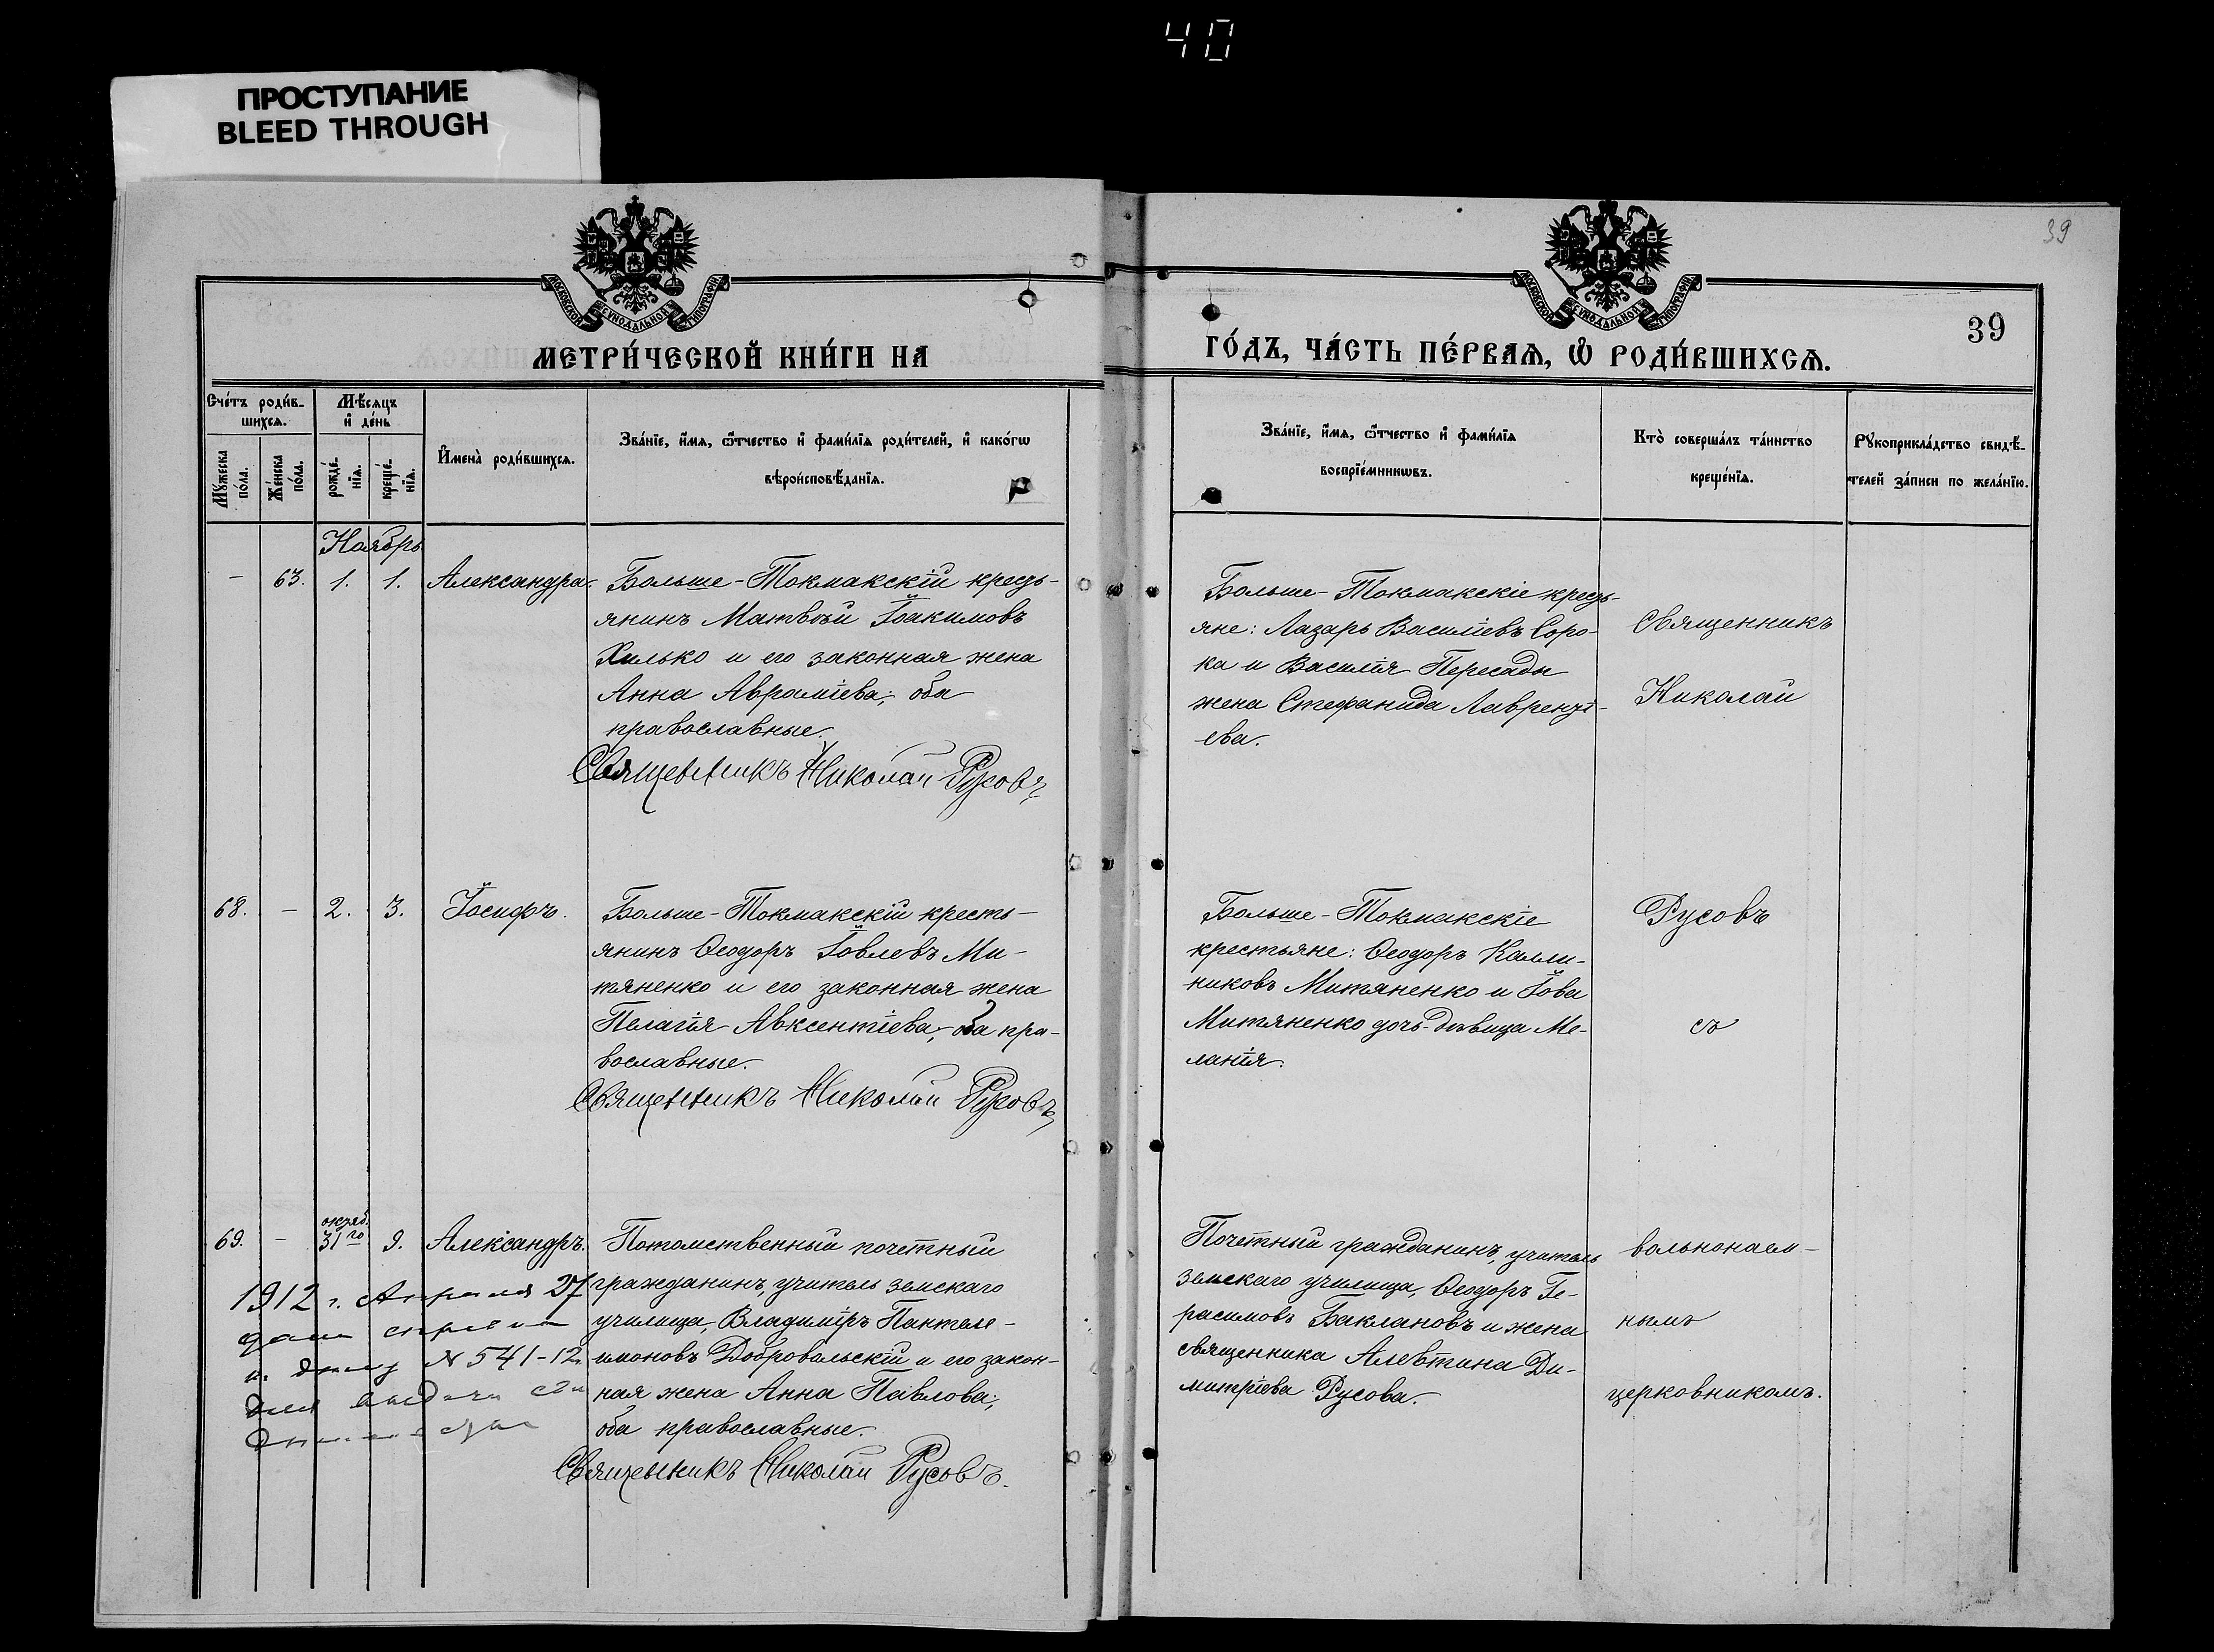 40
ПРОСТУПАНИЕ
BLEED THROUGH
39
МОСКОВСКОЙ СѴНОДАЛЬНОЙ ТИПОГРАФІИ
МОСКОВСКОЙ СѴНОДАЛЬНОЙ ТИПОГРАФІИ
39
МЕТРИ́ЧЕСКОЙ КНИ́ГИ НА
ГО́ДЪ, ЧА́СТЬ ПЕ́РВАѦ, Ѽ РОДИ́ВШИХСѦ.
Сче́тъ роди́в-
шихсѧ.
Мꙋ́жеска
по́ла.
Же́нска
по́ла.
Мѣ́сѧцъ
и҆ де́нь
рожде́-
нїѧ.
креще́-
нїѧ.
И҆мена̀ роди́вшихсѧ.
Зва́нїе, и҆́мѧ, ѻ҆́тчество и҆ фами́лїѧ роди́телей, и҆ како́гѡ
вѣроисповѣ́данїѧ.
Зва́нїе, и҆́мѧ, ѻ҆́тчество и҆ фами́лїѧ
воспрїе́мникѡвъ.
Кто̀ соверша́лъ та́инство
креще́нїѧ.
Рꙋкоприкла́дство свидѣ́-
телей за́писи по жела́нїю.
Ноябрь
- 63. 1. 1. Александра.
Больше-Токмакскій кресть-
янинъ Матвѣй Іоакимовъ
Хилько и его законная жена
Анна Авраміева; оба
православные.
Священникъ Николай Русовъ
Больше-Токмакскіе кресть-
яне: Лазарь Василіевъ Соро-
ка и Василія Пересады
жена Стефанида Лаврентí-
ева.
Священникъ
Николай
68. - 2. 3. Іосифъ.
Больше-Токмакскій кресть-
янинъ Ѳеодоръ Іовлевъ Ми-
тяненко и его законная жена
Пелагія Авксентіева; оба пра-
вославные.
Священникъ Николай Русовъ
Больше-Токмакскіе
крестьяне: Ѳеодоръ Калли-
никовъ Митяненко и Іова
Митяненко дочь-дѣвица Ме-
ланія.
Русовъ
съ
69. - октяб. 31го 9. Александръ.
Потомственный почетный
гражданинъ, учитель земскаго
училища, Владиміръ Пантеле-
имоновъ Добровольскій и его закон-
ная жена Анна Павлова;
оба православные.
Священникъ Николай Русовъ.
1912 г. Апреля 27
дана справка
N 541-12
для выдачи
Почетный гражданинъ, учитель
земскаго училища, Ѳеодоръ Ге-
расимовъ Баклановъ и жена
священника Алевтина Ди-
митріева Русова.
вольнонаем-
нымъ
церковникомъ.